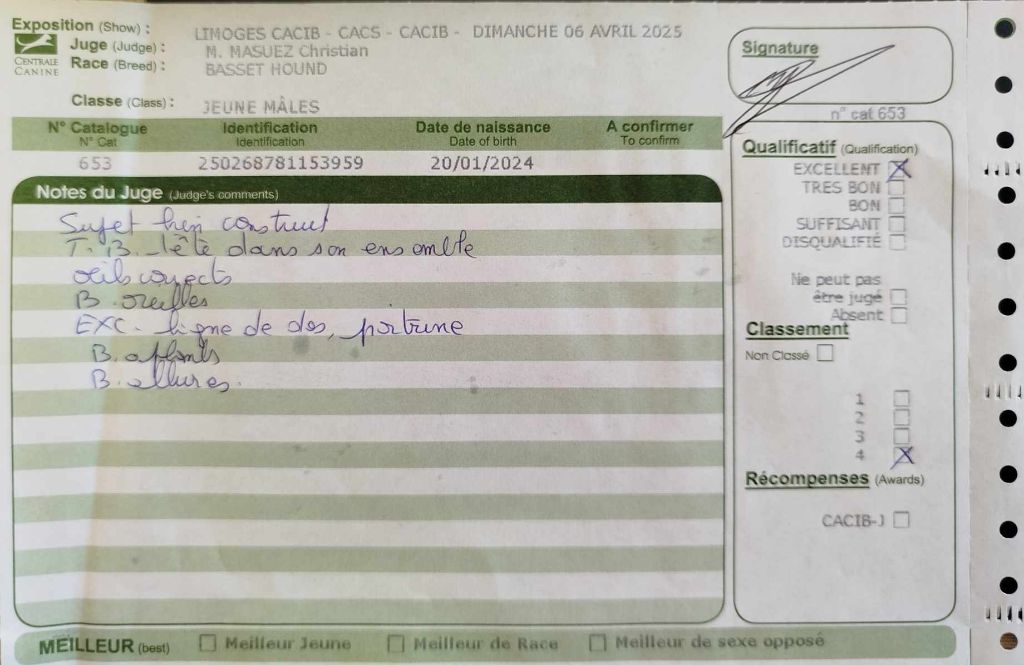 Exposition (Show) : LIMOGES CACIB - CACS - CACIB - DIMANCHE 06 AVRIL 2025
Juge (Judge) : M. MASUEZ Christian
CENTRALE CANINE
Race (Breed) : BASSET HOUND
Classe (Class) : JEUNE MÂLES
Signature
n° cat 653
N° Catalogue Identification Date de naissance A confirmer
N° Cat Identification Date of birth To confirm
653 250268781153959 20/01/2024
Notes du Juge (Judge's comments)
Sujet bien construit
T. B. tête dans son ensemble
œils corrects
B. oreilles
EXC. ligne de dos, poitrine
B. aplombs
B. allures.
Qualificatif (Qualification)
EXCELLENT
TRES BON
BON
SUFFISANT
DISQUALIFIÉ
Ne peut pas
être jugé
Absent
Classement
Non Classé
1
2
3
4
Récompenses (Awards)
CACIB-J
MEILLEUR (best) Meilleur Jeune Meilleur de Race Meilleur de sexe opposé